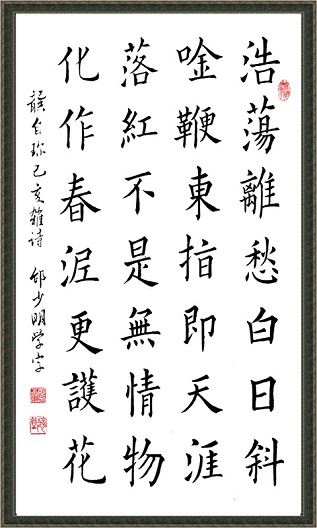 浩蕩離愁白日斜
唫鞭東指即天涯
落紅不是無情物
化作春泥更護花
龔自珍己亥雜诗 邹少明学字